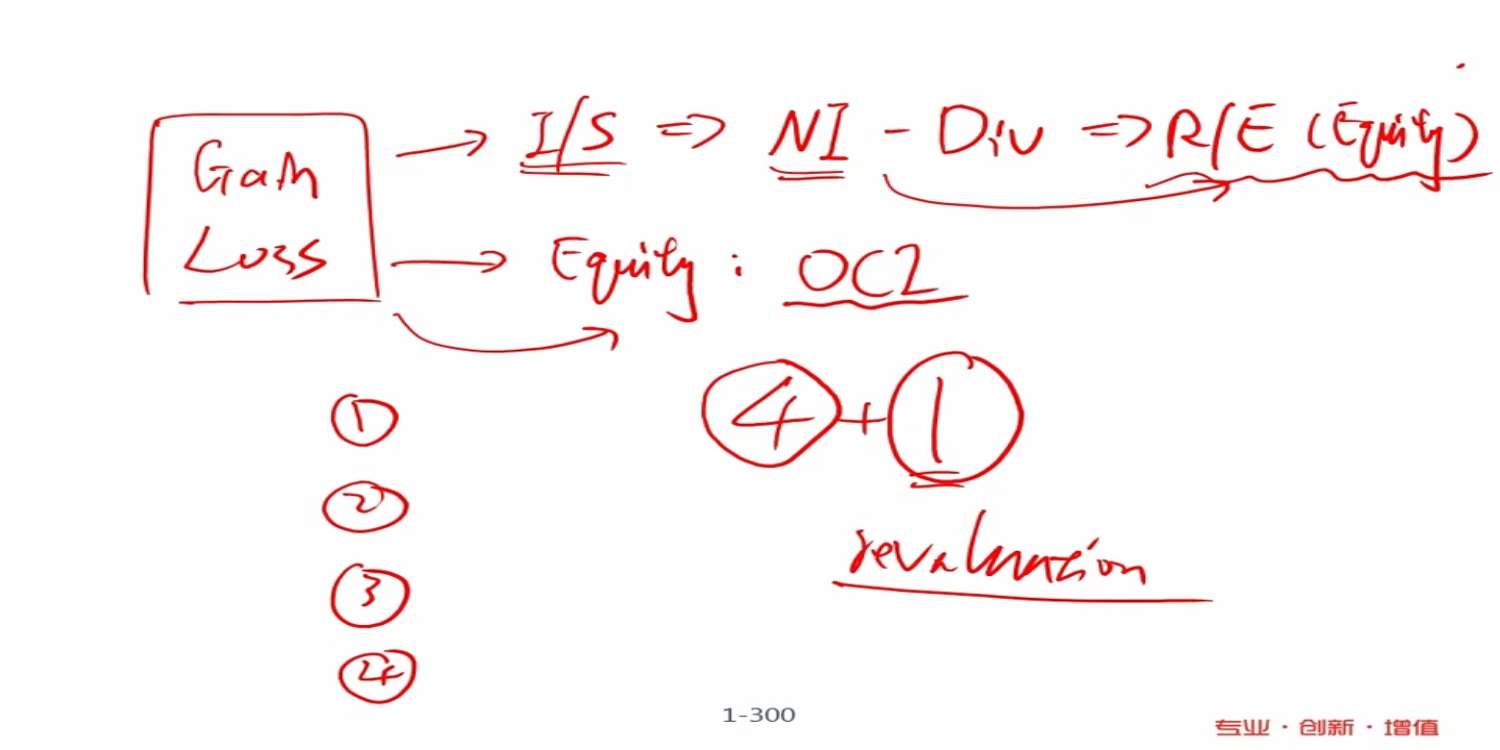 Gain → I/S ⇒ NI - Div ⇒ R/E (Equity)
Loss → Equity : OCI
① ④+①
②
revaluation
③
④
1-300
专业·创新·增值